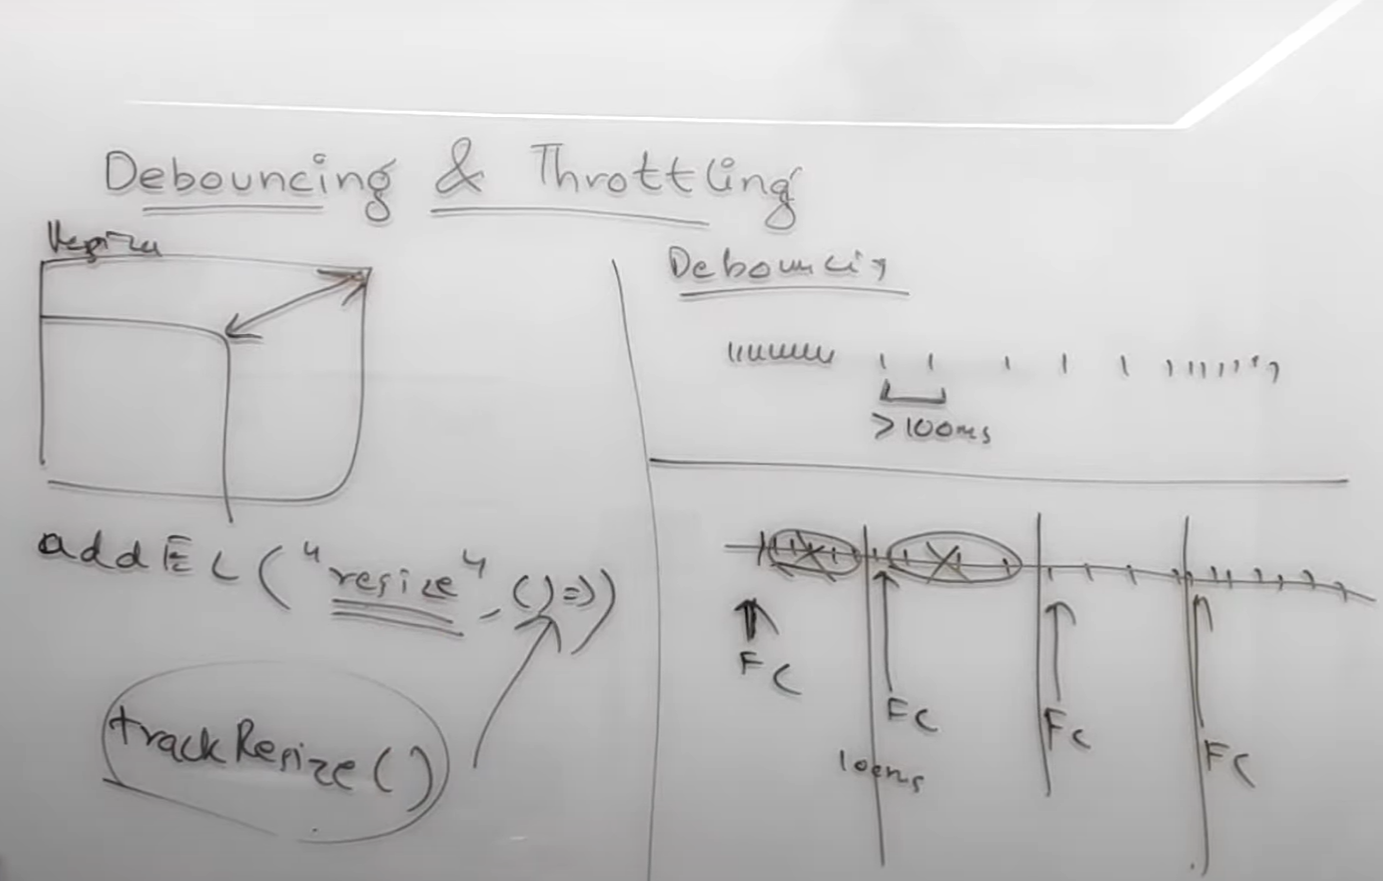 Debouncing & Throttling
Resize
addEL("resize", ()=>)
trackResize()
Debouncing
>100ms
FC
FC
100ms
FC
FC